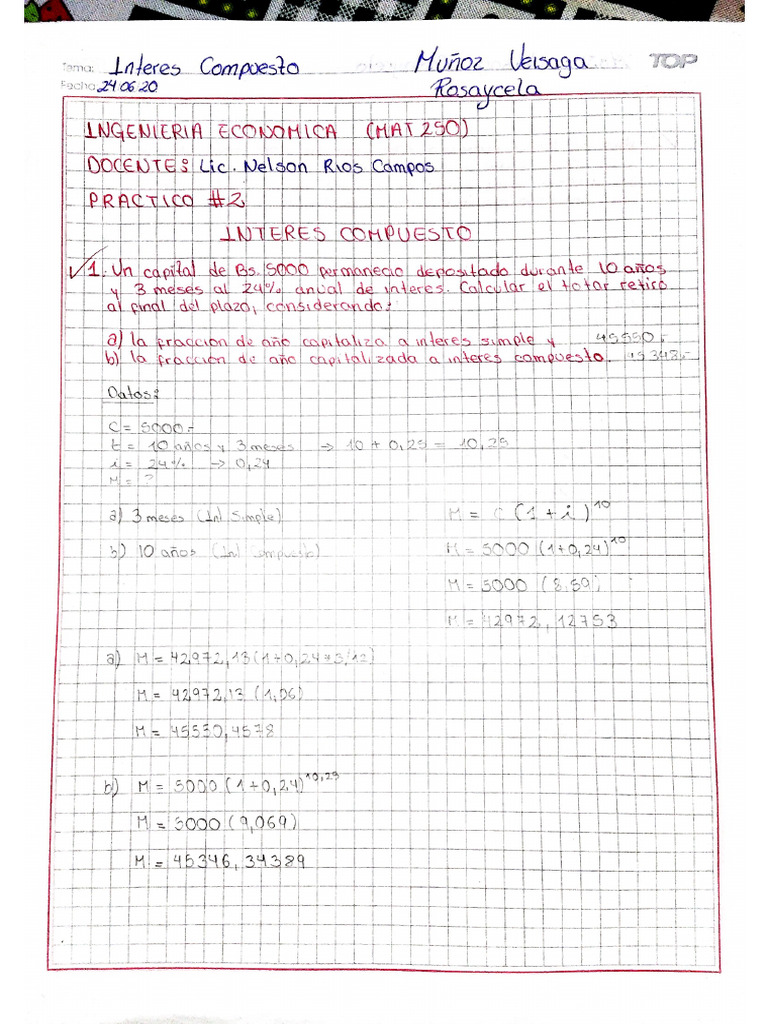 Tema: Interes Compuesto Muñoz Versaga TOP
Fecha: 24 06 20 Rosaycela
INGENIERIA ECONOMICA (MAT 250)
DOCENTE: Lic. Nelson Rios Campos
PRACTICO #2
INTERES COMPUESTO
✓1. Un capital de Bs. 5000 permanecio depositado durante 10 años
y 3 meses al 24% anual de interes. Calcular el totar retiro
al final del plazo, considerando:
a) la fraccion de año capitaliza a interes simple y 45550.-
b) la fraccion de año capitalizada a interes compuesto. 45348.-
Datos:
C = 5000.-
t = 10 años y 3 meses → 10 + 0,25 = 10,25
i = 24% → 0,24
M = ?
a) 3 meses (Int simple) M = C (1 + i)^10
b) 10 años (Int compuesto) M = 5000 (1+0,24)^10
M = 5000 (8,59)
M = 42972,12753
a) M = 42972,13 (1+0,24*3/12)
M = 42972,13 (1,06)
M = 45550,4578
b) M = 5000 (1+0,24)^10,25
M = 5000 (9,069)
M = 45346,34389